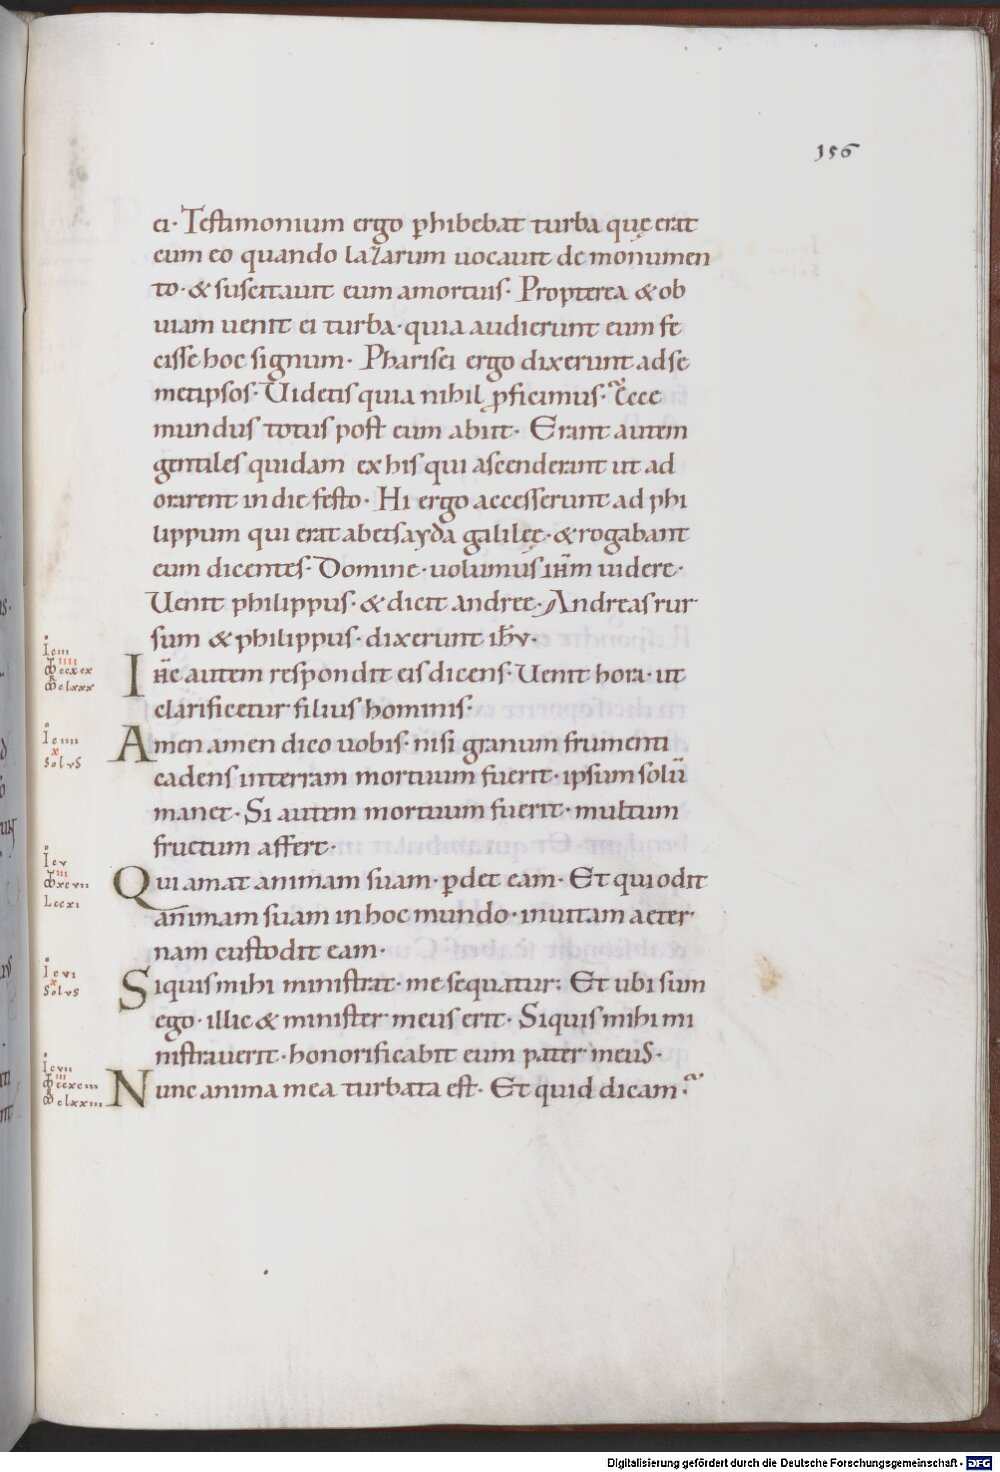 156
ei· Testimonium ergo ꝑhibebat turba quę erat
cum eo quando lazarum uocauit de monumen
to· & suscitauit eum amortuis· Propterea & ob
uiam uenit ei turba· quia audierunt eum fe
cisse hoc signum· Pharisei ergo dixerunt adse
metipsos· Uidetis quia nihil ꝓficimus· Ecce
mundus totus post eum abiit· Erant autem
gentiles quidam ex his qui ascenderant ut ad
orarent in die festo· Hi ergo accesserunt ad phi
lippum qui erat abetsayda galileę· & rogabant
eum dicentes· Domine· uolumus ihm̅ uidere·
Uenit philippus· & dicit andree· Andreas rur
sum & philippus· dixerunt ihu̅·
Ihc̅ autem respondit eis dicens· Uenit hora· ut
clarificetur filius hominis·
Amen amen dico uobis· nisi granum frumenti
cadens interram mortuum fuerit· ipsum solū
manet· Si autem mortuum fuerit· multum
fructum affert·
Qui amat animam suam· ꝑdet eam· Et qui odit
animam suam in hoc mundo· inuitam aeter
nam custodit eam·
Siquis mihi ministrat· me sequatur· Et ubi sum
ego· illic & minister meus erit· Siquis mihi mi
nistrauerit· honorificabit eum pater meus·
Nunc anima mea turbata est· Et quid dicam·
Io ciiii
x
SolVS
Io cv
iii
Lccxi
Io cvi
x
SolVS
Io cvii
iii
Digitalisierung gefördert durch die Deutsche Forschungsgemeinschaft - DFG